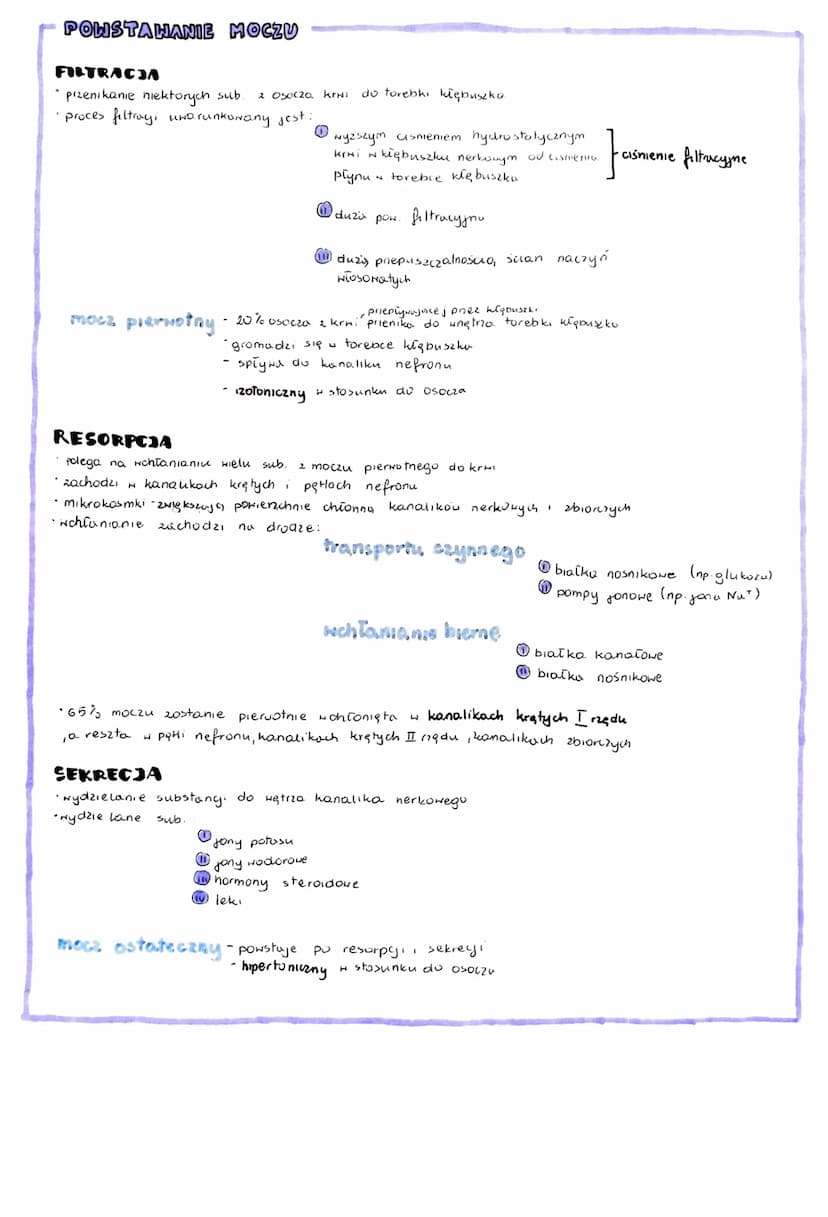 POWSTAWANIE MOCZU
FILTRACJA
• przenikanie niektorych sub. z osocza krwi do torebki kłębuszka
• proces filtracji uwarunkowany jest:
I wyższym ciśnieniem hydrostatycznym
krwi w kłębuszku nerkowym od ciśnienia
płynu w torebce kłębuszka
ciśnienie filtracyjne
II dużą pow. filtracyjną
III dużą przepuszczalnością ścian naczyń
włosowatych
mocz pierwotny
, przepływającej przez kłębuszki
- 20% osocza z krwi przenika do wnętrza torebki kłębuszka
- gromadzi się w torebce kłębuszka
- spływa do kanalika nefronu
- izotoniczny w stosunku do osocza
RESORPCJA
• polega na wchłanianiu wielu sub. z moczu pierwotnego do krwi
• zachodzi w kanalikach krętych i pętlach nefronu
• mikrokosmki - zwiększają powierzchnie chłonną kanalików nerkowych i zbiorczych
• wchłanianie zachodzi na drodze:
transportu czynnego
I białka nośnikowe (np. glukoza)
II pompy jonowe (np. jona Na⁺)
wchłanianie bierne
I białka kanałowe
II białka nośnikowe
• 65% moczu zostanie pierwotnie wchłonięta w kanalikach krętych I rzędu
, a reszta w pętli nefronu, kanalikach krętych II rzędu, kanalikach zbiorczych
SEKRECJA
• wydzielanie substancji do wętrza kanalika nerkowego
• wydzielane sub.
I jony potasu
II jony wodorowe
III hormony steroidowe
IV leki
mocz ostateczny - powstaje po resorpcji i sekrecji
- hipertoniczny w stosunku do osocza